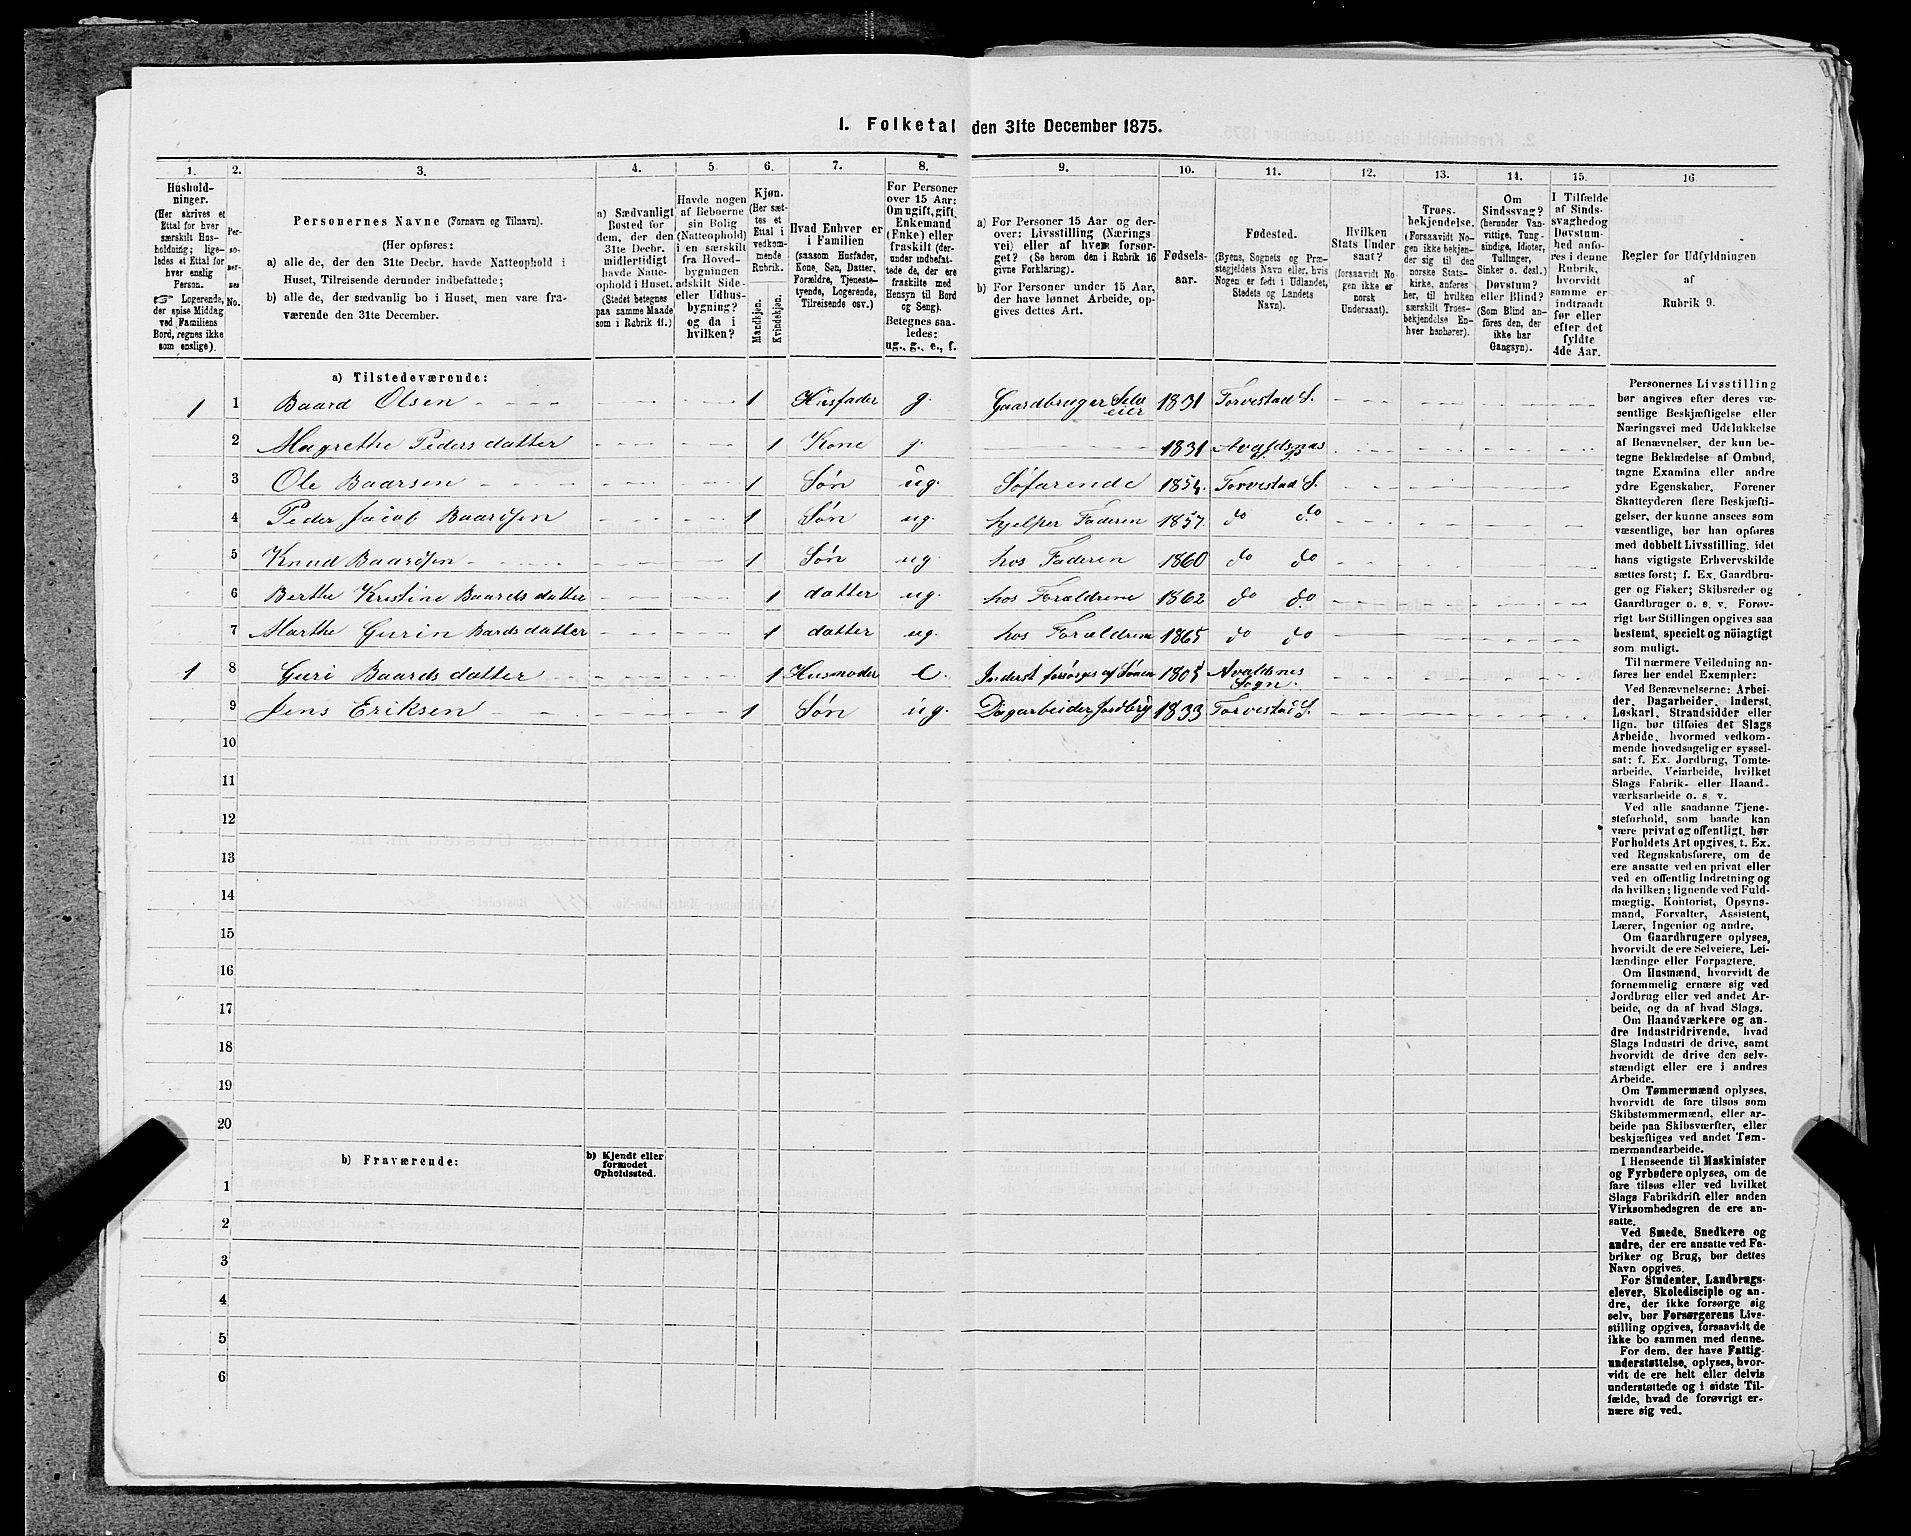 1. Folketal den 31te December 1875.
1. 2. 3. 4. 5. 6. 7. 8. 9. 10. 11. 12. 13. 14. 15. 16
Husholdninger.
(Her skrives et
Ettal for hver
særskilt Husholdning;
ligeledes et Ettal for
hver enslig
Person.
☞ Logerende,
der spise Middag
ved Familiens
Bord, regnes ikke
som enslige).
Personernes No.
Personernes Navne (Fornavn og Tilnavn).
(Her opføres:
a) alle de, der den 31te Decbr. havde Natteophold i
Huset, Tilreisende derunder indbefattede;
b) alle de, der sædvanlig bo i Huset, men vare fraværende
den 31te December.
a) Sædvanligt
Bosted for
dem, der den
31te Decbr.
midlertidigt
havde Natteophold
i Huset.
(Stedet betegnes
paa samme Maade
som i Rubrik 11.)
Havde nogen
af Beboerne
sin Bolig
(Natteophold)
i en særskilt
fra Hovedbygningen
adskilt Side-
eller Udhusbygning?
og da i
hvilken?
Kjøn.
(Her sættes
et
Ettal i
vedkommende
Rubrik.
Mandkjøn.
Kvindekjøn.
Hvad Enhver er
i Familien
(saasom Husfader,
Kone, Søn, Datter,
Forældre, Tjenestetyende,
Logerende,
Tilreisende osv.)
For Personer
over 15 Aar:
Om ugift, gift,
Enkemand
(Enke) eller
fraskilt (derunder
indbefattede
de, der ere
fraskilte med
Hensyn til Bord
og Seng).
Betegnes saaledes:
ug., g., e., f.
a) For Personer 15 Aar og derover:
Livsstilling (Næringsvei)
eller af hvem forsørget?
(Se herom den i Rubrik 16
givne Forklaring).
b) For Personer under 15 Aar,
der have lønnet Arbeide, opgives
dettes Art.
Fødselsaar.
Fødested.
(Byens, Sognets og Præstegjeldets
Navn eller, hvis
Nogen er født i Udlandet,
Stedets og Landets
Navn).
Hvilken
Stats Undersaat?
(forsaavidt Nogen
ikke er
norsk
Undersaat).
Troesbekjendelse.
(Forsaavidt Nogen
ikke bekjender
sig til den
norske Statskirke,
anføres
her, til hvilken
særskilt Troesbekjendelse
Enhver
henhører).
Om
Sindssvag?
(herunder Vanvittige,
Tungsindige,
Idioter,
Tullinger,
Sinker o. desl.)
Døvstum?
eller Blind?
(Som Blind anføres
den, der
ikke har
Gangsyn).
I Tilfælde
af Sindssvaghed
og
Døvstumhed
anføres
i denne
Rubrik,
hvorvidt
samme er
indtraadt
før eller
efter det
fyldte
4de Aar.
Regler for Udfyldningen
af
Rubrik 9.
a) Tilstedeværende:
1 1 Baard Olsen 1 Husfader g. Gaardbruger Selveier 1831 Torvestad S.
2 Magrethe Peders datter 1 Kone g. 1831 Avaldsnæs
3 Ole Baarsen 1 Søn ug. Søfarende 1854. Torvestad S.
4 Peder Jacob Baardsen 1 Søn ug. hjelper Faderen 1857. do do
5 Knud Baardsen 1 Søn ug hos Faderen 1860 do do
6 Berthe Kristine Baards datter 1 datter ug. hos Forældrene 1862 do do
7 Marthe Gurin Bards datter 1 datter ug. hos Forældrene 1865 do do
1 8 Guri Baards datter 1 Husmoder e. Inderst forsørges af Sønen 1805 Avaldsnes Sogn.
9 Jens Eriksen 1 Søn ug. Dagarbeider jordbrug 1833 Torvestad S.
10
11
12
13
14
15
16
17
18
19
20
b) Fraværende:
b) Kjendt eller
formodet
Opholdssted.
1
2
3
4
5
6
Personernes Livsstilling
bør angives efter deres væsentlige
Beskjæftigelse eller
Næringsvei med Udelukkelse
af Benævnelser, der kun betegne
Beklædelse af Ombud,
tagne Examina eller andre
ydre Egenskaber. Forener
Skatteyderen flere Beskjæftigelser,
der kunne ansees som
væsentlige, bør han opføres
med dobbelt Livsstilling, idet
hans vigtigste Erhvervskilde
sættes først; f. Ex. Gaardbruger
og Fisker; Skibsreder og
Gaardbruger o. s. v. Forøvrigt
bør Stillingen opgives saa
bestemt, specielt og nöiagtigt
som muligt.
Til nærmere Veiledning anføres
her endel Exempler:
Ved Benævnelserne: Arbeider,
Dagarbeider, Inderst,
Løskarl, Strandsidder eller
lign. bør tilføies det Slags
Arbeide, hvormed vedkommende
hovedsagelig er sysselsat;
f. Ex. Jordbrug, Tomtearbeide,
Veiarbeide, hvilket
Slags Fabrik- eller Haandværksarbeide
o. s. v.
Ved alle saadanne Tjenesteforhold,
som baade kan
være privat og offentligt, bør
Forholdets Art opgives, t. Ex.
ved Regnskabsførere, om de
ere ansatte ved en privat eller
ved en offentlig Indretning og
da hvilken; lignende ved Fuldmægtig,
Kontorist, Opsynsmand,
Forvalter, Assistent,
Lærer, Ingeniør og andre.
Om Gaardbrugere oplyses,
hvorvidt de ere Selveiere, Leilændinge
eller Forpagtere.
Om Husmænd, hvorvidt de
fornemmelig ernære sig ved
Jordbrug eller ved andet Arbeide,
og da af hvad Slags.
Om Haandværkere og andre
Industridrivende, hvad
Slags Industri de drive, samt
hvorvidt de drive den selvstændigt
eller ere i andres
Arbeide.
Om Tømmermænd oplyses,
hvorvidt de fare tilsøs som
Skibstømmermænd, eller arbeide
paa Skibsværfter, eller
beskjæftiges ved andet Tømmermandsarbeide.
I Henseende til Maskinister
og Fyrbødere oplyses, om de
fare tilsøs eller ved hvilket
Slags Fabrikdrift eller anden
Virksomhedsgren de ere ansatte.
Ved Smede, Snedkere og
andre, der ere ansatte ved Fabriker
og Brug, bør dettes
Navn opgives.
For Studenter, Landbrugselever,
Skoledisciple og andre,
der ikke forsørge sig
selv, bør Forsørgerens Livsstilling
opgives, forsaavidt de
ikke bo sammen med denne.
For dem, der have Fattigunderstøttelse,
oplyses, hvorvidt
de ere helt eller delvis
understøttede og i sidste Tilfælde,
hvad de forøvrigt ernære
sig ved.